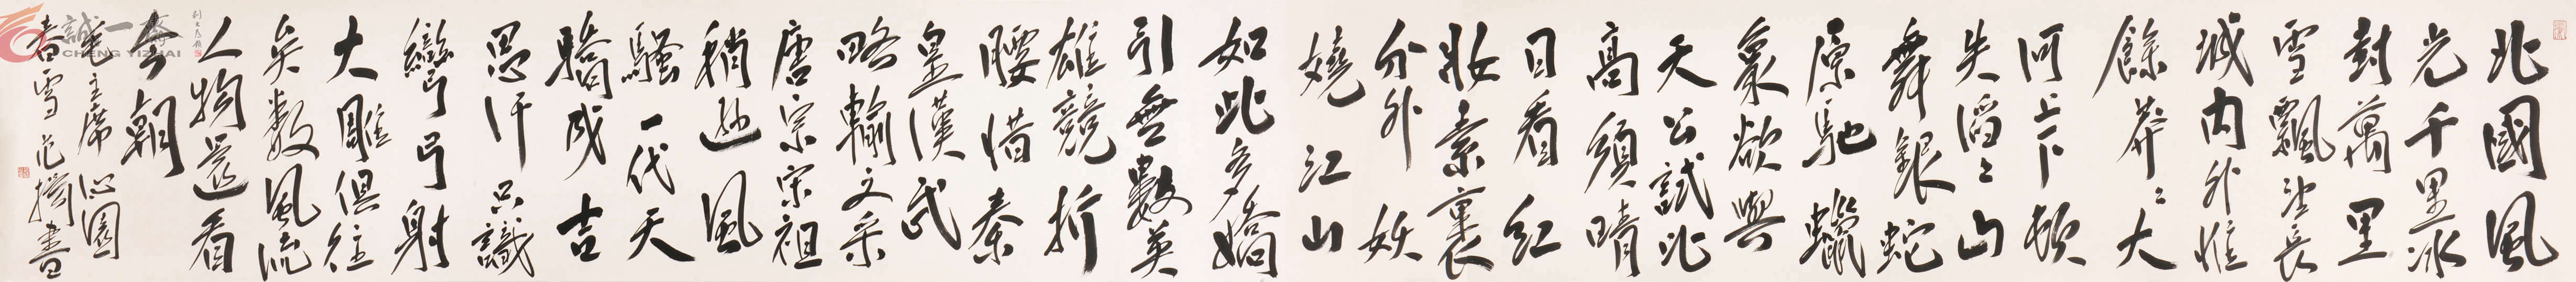 北國風
光千里冰
封萬里
雪飄望長
城內外惟
餘莽〻大
河上下頓
失滔〻山
舞銀蛇
原馳蠟
象欲與
天公試比
高須晴
日看紅
妝素裹
分外妖
嬈江山
如此多嬌
引無數英
雄競折
腰惜秦
皇漢武
略輸文采
唐宗宋祖
稍遜風
騷一代天
驕成吉
思汗只識
彎弓射
大雕俱往
矣數風流
人物還看
今朝
毛主席沁園
春雪范揚書
誠一齋
CHENG YIZHAI